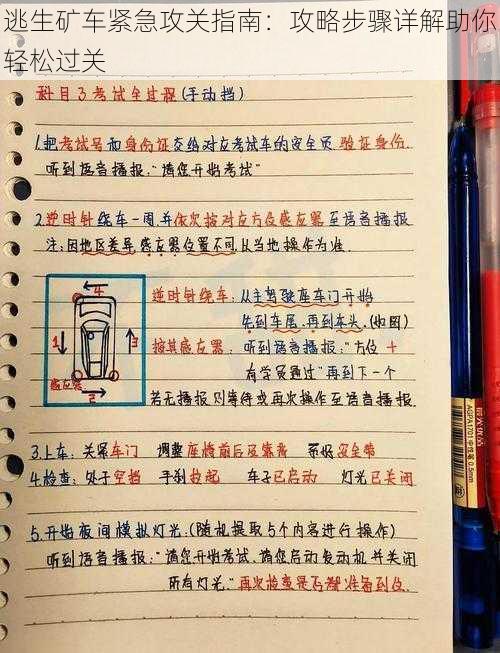 逃生矿车紧急攻关指南：攻略步骤详解助你
轻松过关
科目3考试全过程(手动挡)
1.把考试号和身份证交给对应考试车的安全员 验证身份.
听到语音播报:"请您开始考试"
2.逆时针绕车一周,并依次按对应方位感应器至语音播报
注:因地区差异,感应器位置不同,以当地操作为准.
逆时针绕车: 从主驾驶座车门开始
先到车尾,再到车头.(如图)
按其感应器: 听到语音播报:"方位+
有学员通过"再到下一个
若无播报则等待或再次操作至语音播报.
4
1
3
感应器
2
3.上车: 关紧车门 调整座椅前后及靠背 系好安全带
4.检查: 处于空挡 手刹拉起 车子已启动 灯光已关闭
5.开始夜间模拟灯光.(随机提取5个内容进行操作)
听到语音播报:"请您开始考试,请您启动发动机并关闭
所有灯光."再次检查是否都准备到位.
AGPA1701 中性笔 0.5mm